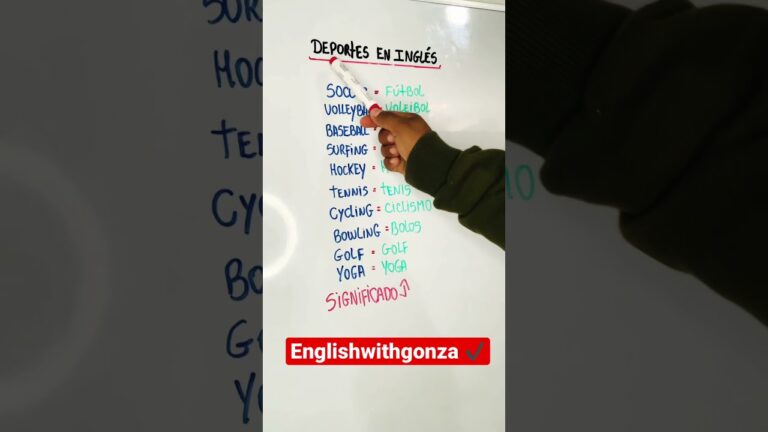 DEPORTES EN INGLÉS
= FÚTBOL
= VOLEIBOL
BASEBALL =
SURFING =
HOCKEY =
TENNIS = TENIS
CYCLING = CICLISMO
BOWLING = BOLOS
GOLF = GOLF
YOGA = YOGA
SIGNIFICADO
Englishwithgonza ✔